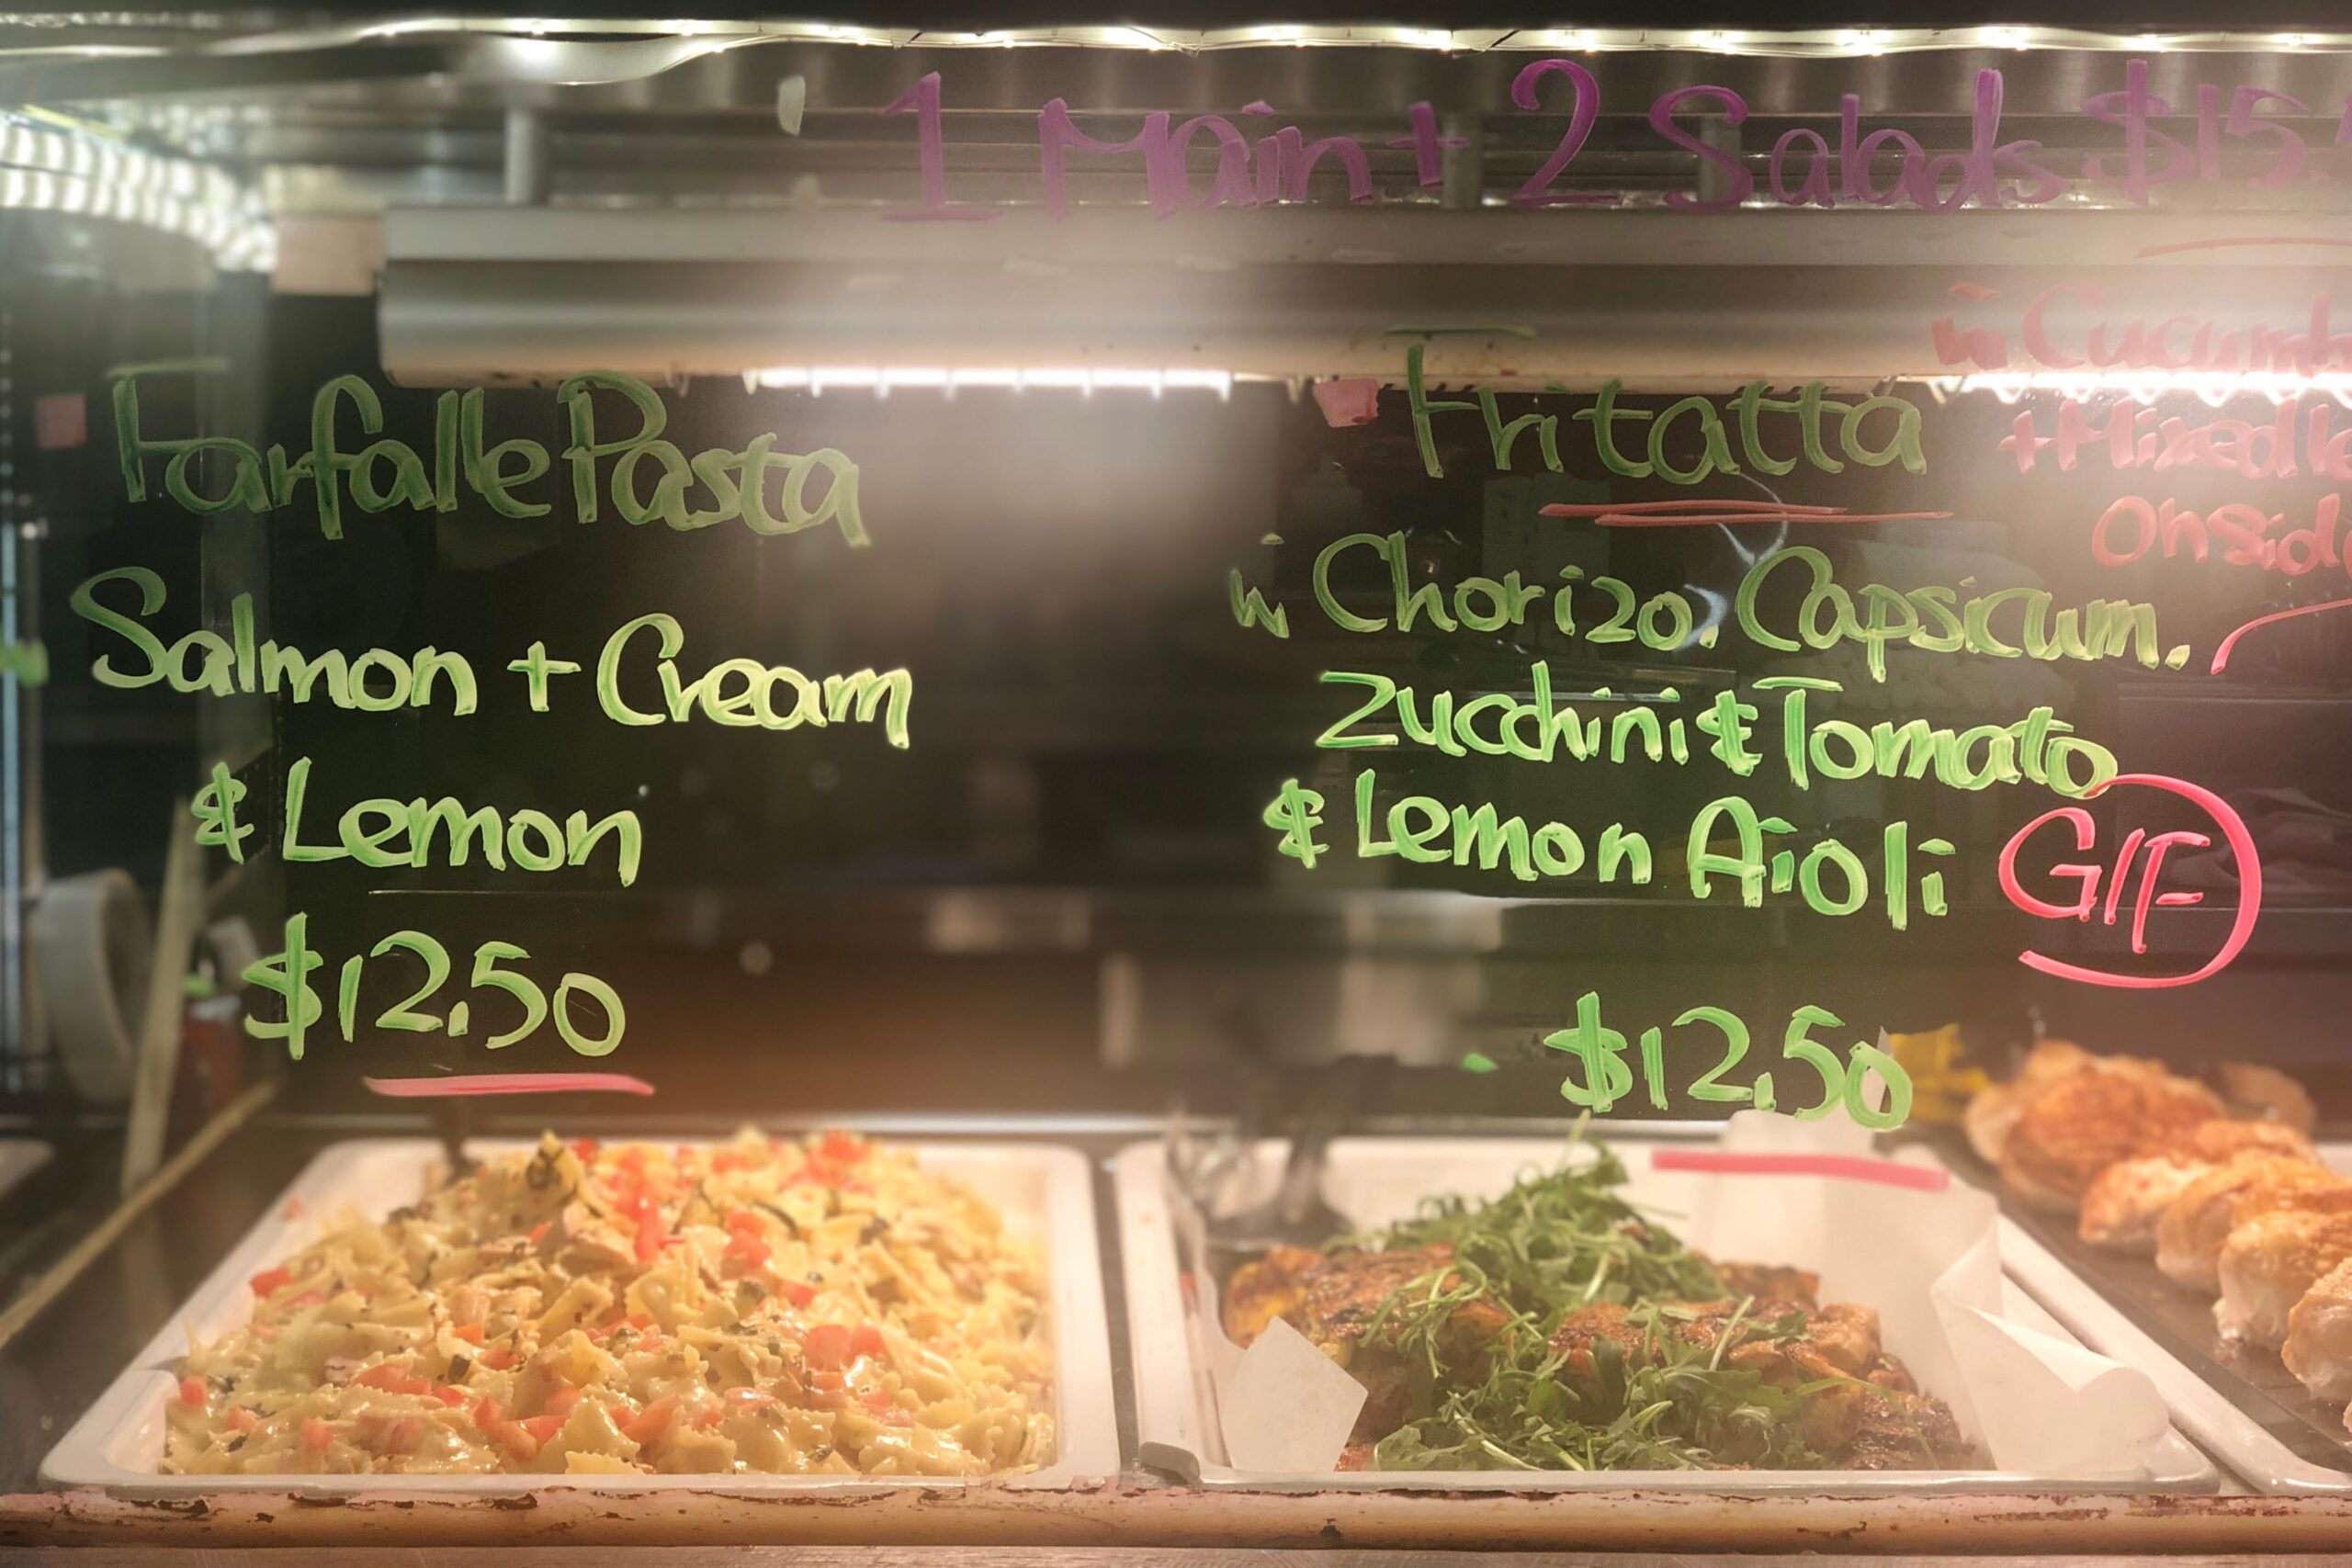 1 Main + 2 Salads $15.
Farfalle Pasta
Salmon + Cream
& Lemon
$12.50
Fritatta
w Chorizo. Capsicum.
Zucchini & Tomato
& Lemon Aioli G/F
$12.50
w
+ Mixed
On